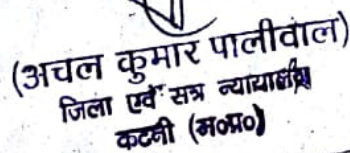 (अचल कुमार पालीवाल)
जिला एवं सत्र न्यायाधीश
कटनी (म०प्र०)